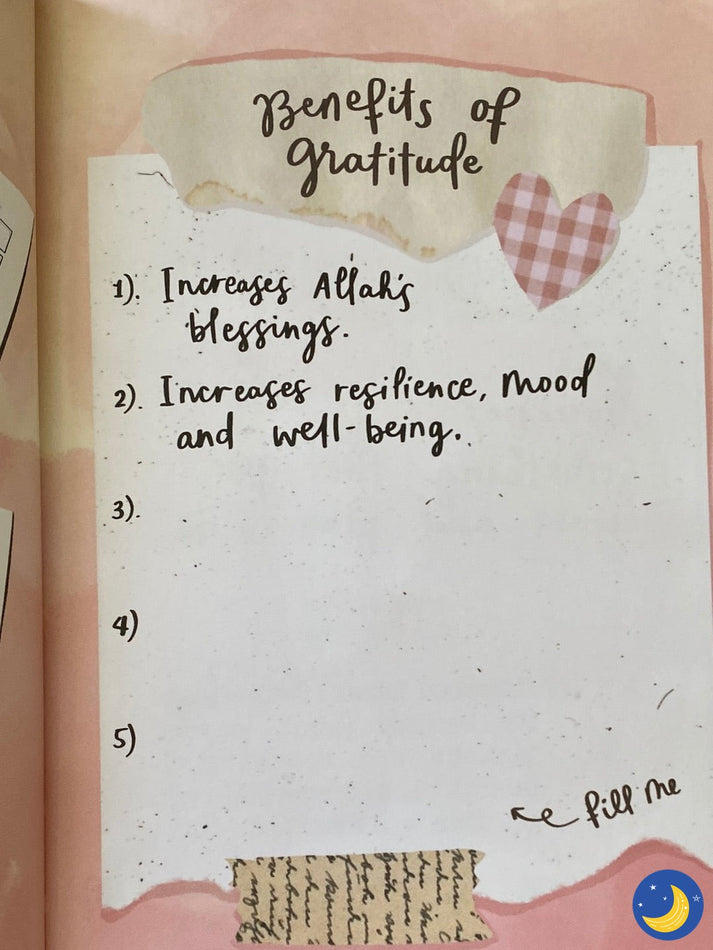 Benefits of
gratitude
1). Increases Allah's
blessings.
2). Increases resilience, mood
and well-being.
3).
4)
5)
fill me